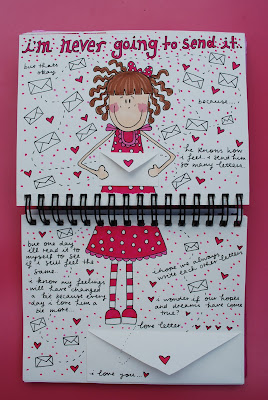 i'm never going to send it..
but thats
okay
because...
he knows how
i feel. i send him
so many letters.
but one day
ill read it to
myself to see
if i still feel the
same.
i know my feelings
will have changed
a bit because every
day i love him a
bit more.
i hope we always
write each other letters
i wonder if our hopes
and dreams have come
true?
love letter.
i love you...